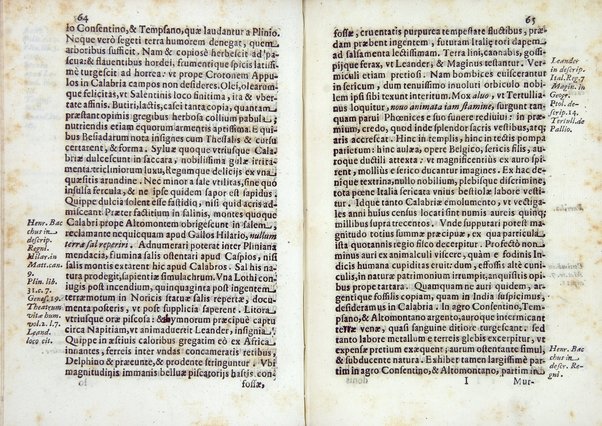 64
lo Consentino, & Tempsano, quæ laudantur a Plinio.
Neque verò segeti terra humorem denegat, quem
arboribus sufficit. Nam & copiosè herbescit ad pa-
bula: & fluentibus hordei, frumentique spicis lætissi-
mè turgescit ad horrea: vt propè Crotonem Appu-
los in Calabria campos non desideres. Olei, olearum-
que felicitas, vt Salentinis loco finitima, ita & vber-
tate affinis. Butiri, lactis, casei tanta copia, quantam
præstant opimis gregibus herbosa collium pabula;
nutriendis etiam equorum armentis aptissima. E qui-
bus Besiadarum nota insignes cum Thessalis & cursu
certarent, & forma. Sylux quoque vtriusque Calab-
briæ dulcescunt in saccara, nobilissima gulæ irrita-
menta: tricliniorum luxu, Regumque delicijs ex vna
quæsitis arundine. Nec minor a sale vtilitas, sine quo
insulsa fercula, & ne ipse quidem sapor est sapidus.
Quippe dulcia solent esse fastidio, nisi quid acris ad-
misceas. Præter factitium in salinis, montes quoque
Calabri propè Altomontem obrigescunt in salem,
reclamante nequicquam apud Gallos Hilario, nullam
terra sal reperiri. Adnumerari poteat inter Pliniana
mendacia, fluminis salem ostiati apud Caspios, nisi
salis montis extarent hic apud Calabros. Sal his na-
tura prodegit, sapientiæ simulachrum. Vna Lothi con-
iugis post incendium, quinquaginta post ingentem
terræmotum in Noricis statuæ salis repertæ, docu-
menta posteris, vt post supplicia saperent. Litora
vtriusque oræ piscosa: & thymnorum præcipuè captu
circa Napitiam, vt animaduerit Leander, insignia.
Quippe in æstiuis caloribus gregatim eò ex Africa
innantes, ferreis inter vndas concameratis retibus,
Delphino & præeunte, & prodente stringuntur. Vbi
magnitudinis immanis belluæ piscatorijs hastis con-
fossæ,
Henr. Bac
chus in
descrip.
Regni.
Hilar. in
Matt. can.
9.
Plin. lib.
31. c. 7.
Genes. 19.
Theatrum
vitæ hum.
vol. 2. l. 7.
Leand.
loco cit.
65
fossæ, cruentatis purpurea tempestate fluctibus, emo-
riuntur, præstantissimum, futuram Italiæ tori dapem.
sunt vtrique Calabriæ greges ad lanam aptissimi, gos-
sipijque ferax, vt Leander, & Maginus testantur. Ver-
miculi etiam pretiosi. Nam bombices euiscerantur
in sericum, dum tenuissimo inuoluti orbiculo nobi-
lem ipsi sibi texunt interitum. Mox aluo, vt Tertul-
lus loquitur, nouo animata iam stamine, surgunt tan-
quam parui Phœnices e suo funere rediuiui: in præ-
mium, credo, quod inde splendor sacris vestibus, atq;
aris accrescat. Hinc in templis, hinc in tectis pompa
parietum: hinc aulæa, opere Belgico, sericis filis, au-
roque ductili attexta: vt magnificentiùs ex auro spi-
rent, molliùs e serico ducantur imagines. Ex hac de-
nique textrina, nullo nobilium, plebeique discrimine,
tota pœnè Italia sericata vnius bestiolæ labore vesti-
tur. Idque tanto Calabriæ emolumento, vt vectiga-
les inde anni census longè fluant nummis aureis quin-
millibus supra trecentos. Vnde suppurari potest ma-
gnitudo totius summæ præcipuæ, ex qua particula
ista quotannis regio fisco decerpitur. Profectò non
minus auri ex animalculi viscere, quàm e fodinis In-
dicis humana cupiditas eruit: dum, effossis altè cuni-
culis, in naturæ patrimonium irrumpit, ansitis opi-
bus præter naturam. Quamquam ne auri quidem, ar-
gentique fossilis copiam, quam in India suspicimus,
desideramus in Calabria. In agro Consentino, Tem-
psano, & Altomontano argento, auroque intermicant
terræ venæ, quasi sanguine ditiore turgescant. sed
tanto labore metallum e terreis glebis excerpitur, vt
expensæ pretium exæquent: aurum ostentante simul,
& subducente natura. Exhibet tamen largissimè par-
tim in agro Consentino, & Altomontano, partim in
I Mut-
Leander
in descrip.
Ital. Reg. 7
Magin. in
Geogr.
Ptol. de-
scrip. 14.
Tertull. de
Pallio.
Henr. Bac
chus in
descr. Re-
gni.